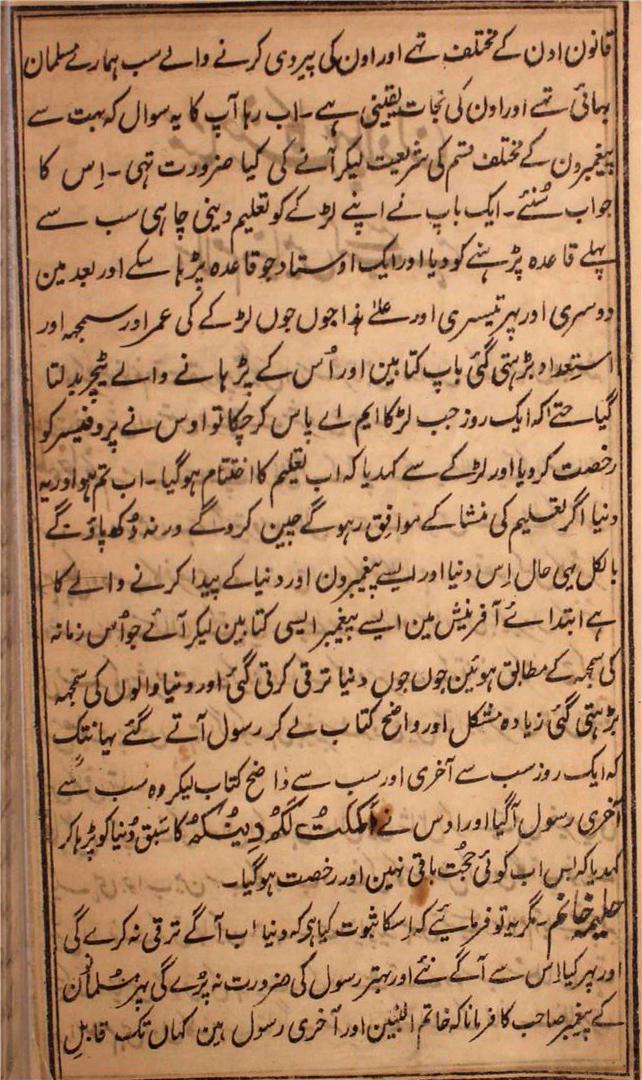 قانون اون کے مختلف تھے اور اون کی پیروی کرنے والے سب ہمارے مسلمان
بہائی تھے اور اون کی نجات یقینی ہے۔ اب رہا آپ کا یہ سوال کہ بہت سے
پیغمبرون کے مختلف قسم کی شریعت لیکر آنے کی کیا ضرورت تہی۔ اِس کا
جواب سُنئے۔ ایک باپ نے اپنے لڑکے کو تعلیم دینی چاہی سب سے
پہلے قاعدہ پڑہنے کو دیا اور ایک اوستاد جو قاعدہ پڑہا سکے اور بعد مین
دوسری اور پہر تیسری اور علےٰ ہذا جوں جوں لڑکے کی عمر اور سمجہہ اور
استعداد بڑہتی گئی باپ کتابین اور اُس کے پڑہانے والے ٹیچر بدلتا
گیا حتے اکہ ایک روز جب لڑکا ایم اے پاس کرچکا تو اوس نے پروفیسر کو
رخصت کردیا اور لڑکے سے کہدیا کہ اب تعلیم کا اختتام ہوگیا۔ اب تم ہو اور یہ
دنیا اگر تعلیم کی منشا کے موافق رہوگے چین کروگے ورنہ دُکھ پاؤگے
بالکل یہی حال اِس دنیا اور ایسے پیغمبرون اور دنیا کے پیدا کرنے والے کا
ہے ابتدائے آفرینش مین ایسے پیغمبر ایسی کتابین لیکر آئے جو اُس زمانہ
کی سمجہہ کے مطابق ہوئین جوں جوں دنیا ترقی کرتی گئی اور دنیا والوں کی سمجہہ
بڑہتی گئی زیادہ مشکل اور واضح کتاب لے کر رسول آتے گئے یہانتک
کہ ایک روز سب سے آخری اور سب سے واضح کتاب لیکر وہ سب سے
آخری رسول آگیا اور اوس نے اَکْمَلْتُ لَکُمْ دِیْنَکُمْ کا سبق دُنیا کو پڑہا کر
کہدیا کہ بس اب کوئی حجت باقی نہین اور رخصت ہوگیا۔
حلیمہ خانم۔ مگر یہ تو فرمائیے کہ اِسکا ثبوت کیا ہی کہ دنیا اب آگے ترقی نہ کرے گی
اور پہر کیا اِس سے آگے نئے اور بہتر رسول کی ضرورت نہ پڑے گی پہر مسلمانون
کے پیغمبر صاحب کا فرمانا کہ خاتم النبین اور آخری رسول ہین کہاں تک قابلِ